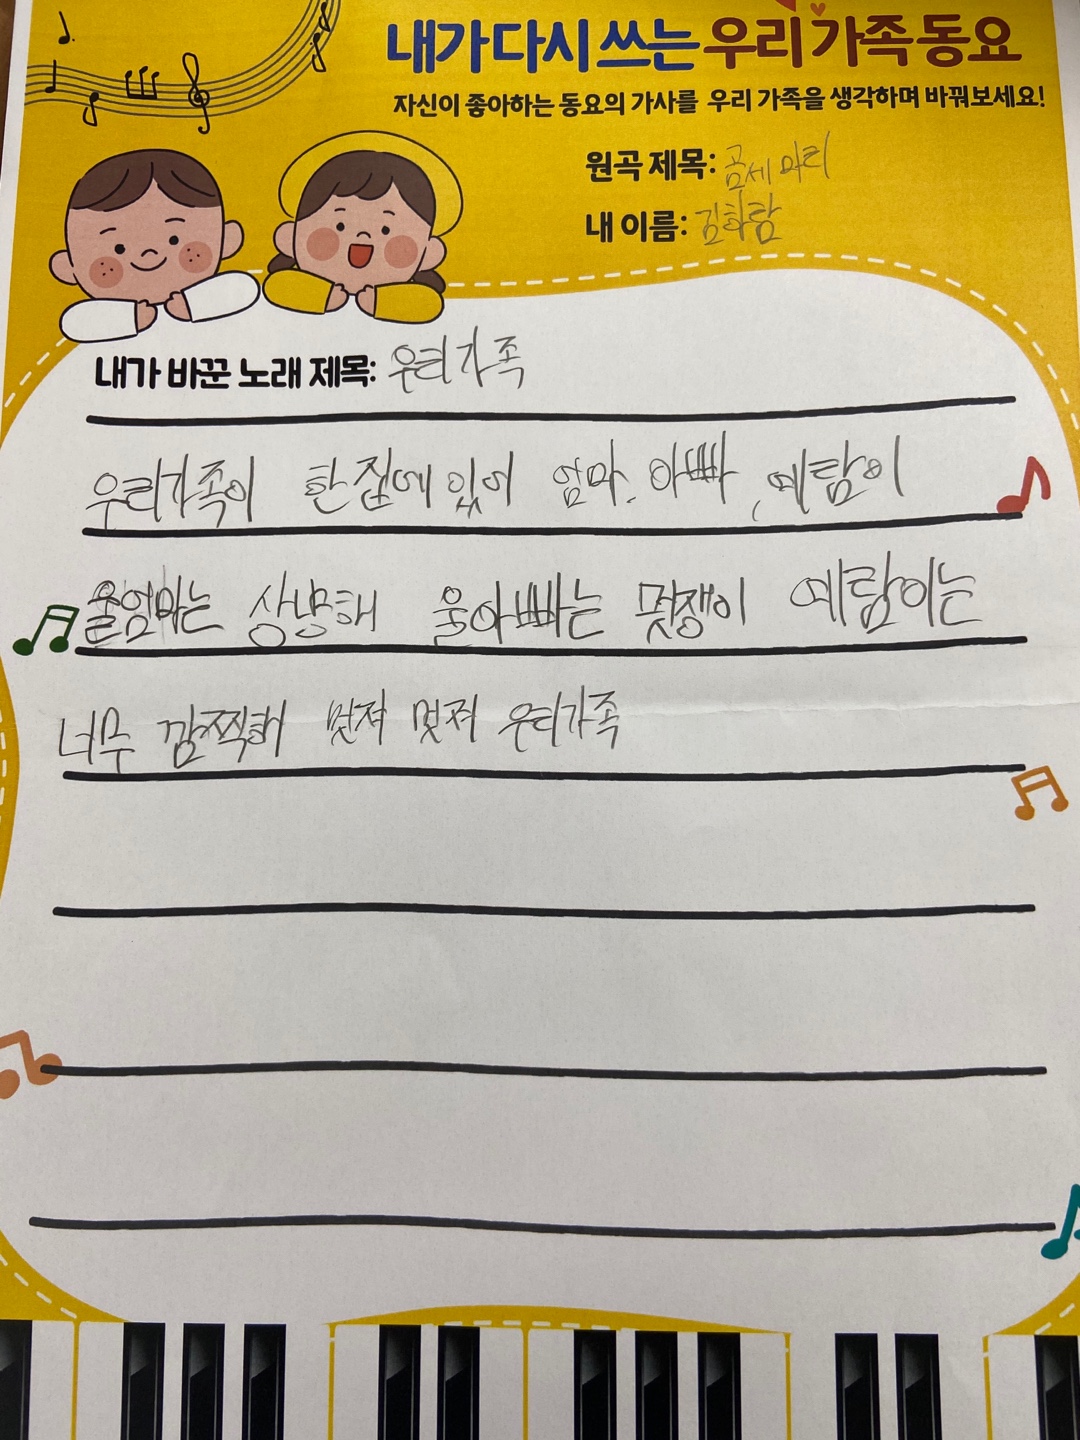 내가 다시 쓰는 우리 가족 동요
자신이 좋아하는 동요의 가사를 우리 가족을 생각하며 바꿔보세요!
원곡 제목: 곰세마리
내 이름: 김하람
내가 바꾼 노래 제목: 우리가족
우리가족이 한집에 있어 엄마, 아빠, 예람이
울엄마는 상냥해 울아빠는 멋쟁이 예람이는
너무 깜찍해 멋져 멋져 우리가족